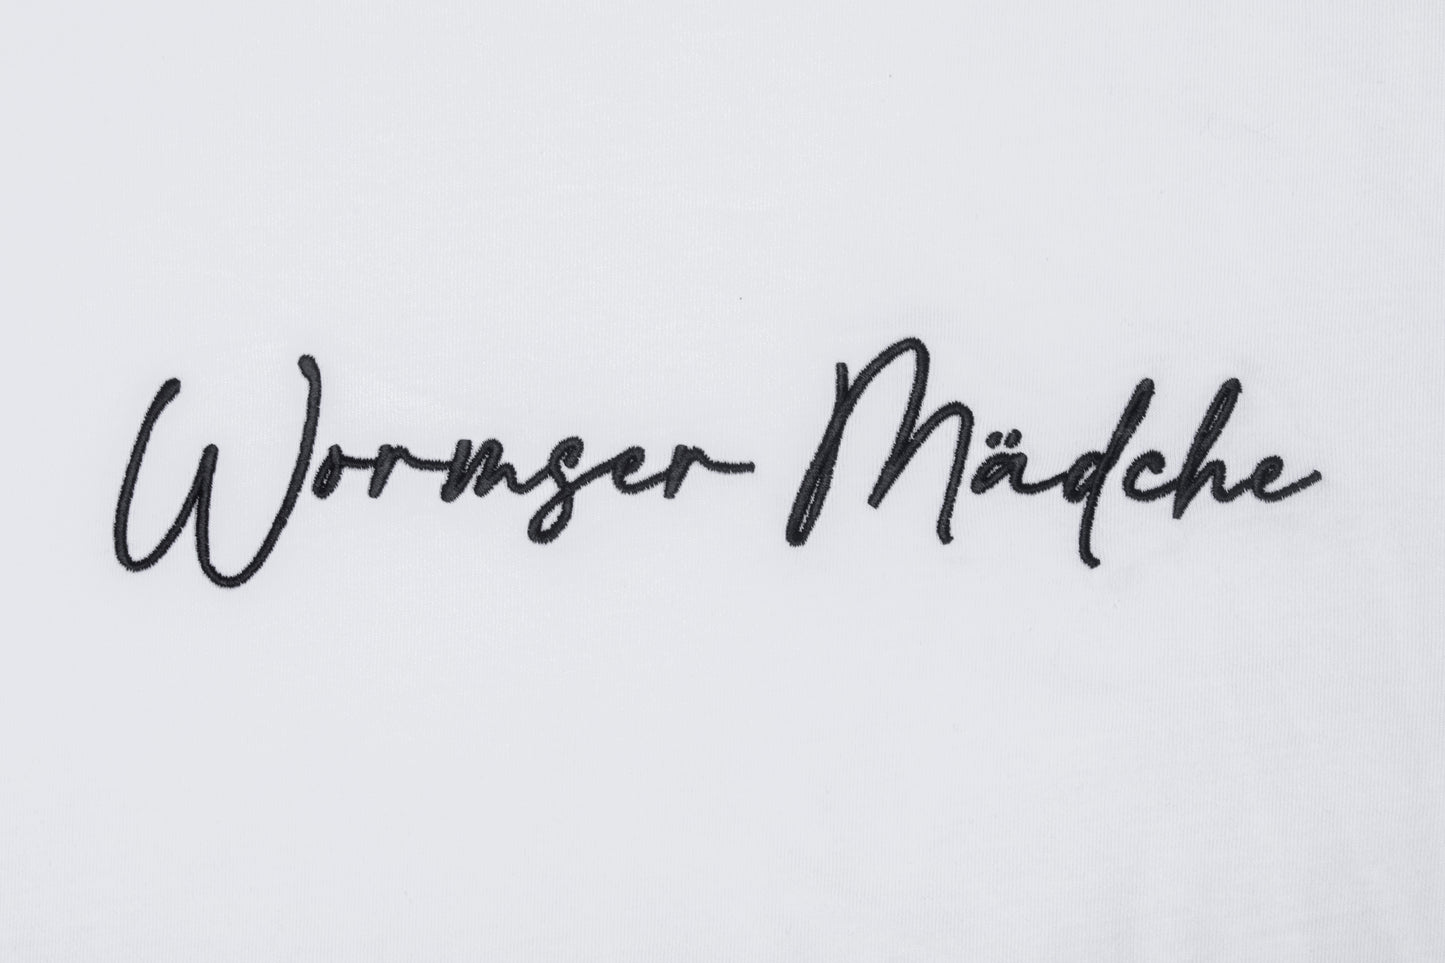 Wormser Mädche